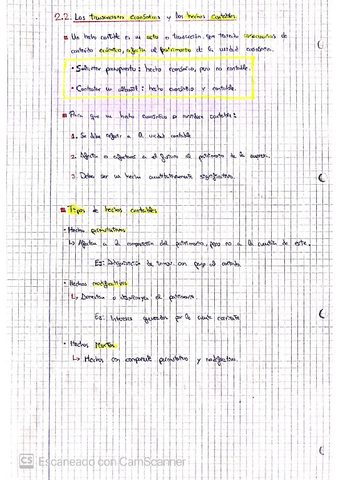 2.2. Las transacciones económicas y los hechos contables.
Un hecho contable es un acto o transacción, que teniendo consecuencias de
contenido económico, afecta al patrimonio de la unidad económica.
· Solicitar presupuesto: hecho económico, pero no contable.
· Contratar un albañil: hecho económico y contable.
Para que un hecho económico se considere contable:
1. Se debe referir a la unidad contable
2. Afecta o afectará a el futuro el patrimonio de la empresa.
3. Debe ser un hecho cuantitativamente significativo.
Tipos de hechos contables
· Hechos permutativos
↳ Afectan a la composición del patrimonio, pero no a la cuantía de este.
Ej: Adquisición de con pago al contado
· Hechos modificativos
↳ Aumentan o disminuyen el patrimonio.
Ej: Intereses generados por la cuenta corriente
· Hechos Mixtos
↳ Hechos con componente permutativo y modificativo.
CS Escaneado con CamScanner